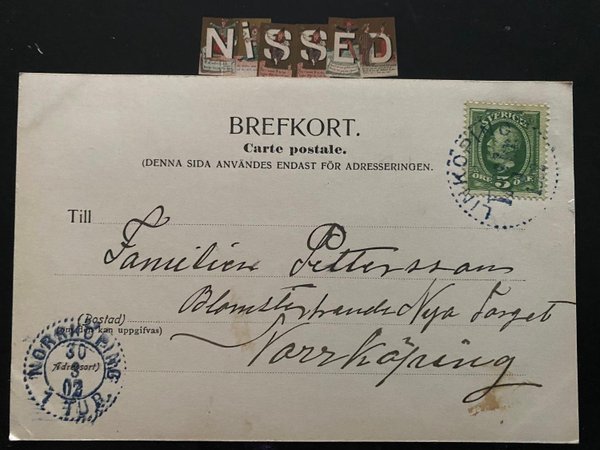 NiSSED
BREFKORT.
Carte postale.
(DENNA SIDA ANVÄNDES ENDAST FÖR ADRESSERINGEN.
SVERIGE
5
ÖRE
LINKÖPING
Till
Familien Pettersson
Blomsterhandl Nya Torget
Norrköping
(Bostad)
(om den kan uppgifvas)
(Adressort)
NORRKÖPING
30
3
02
1 TUR.